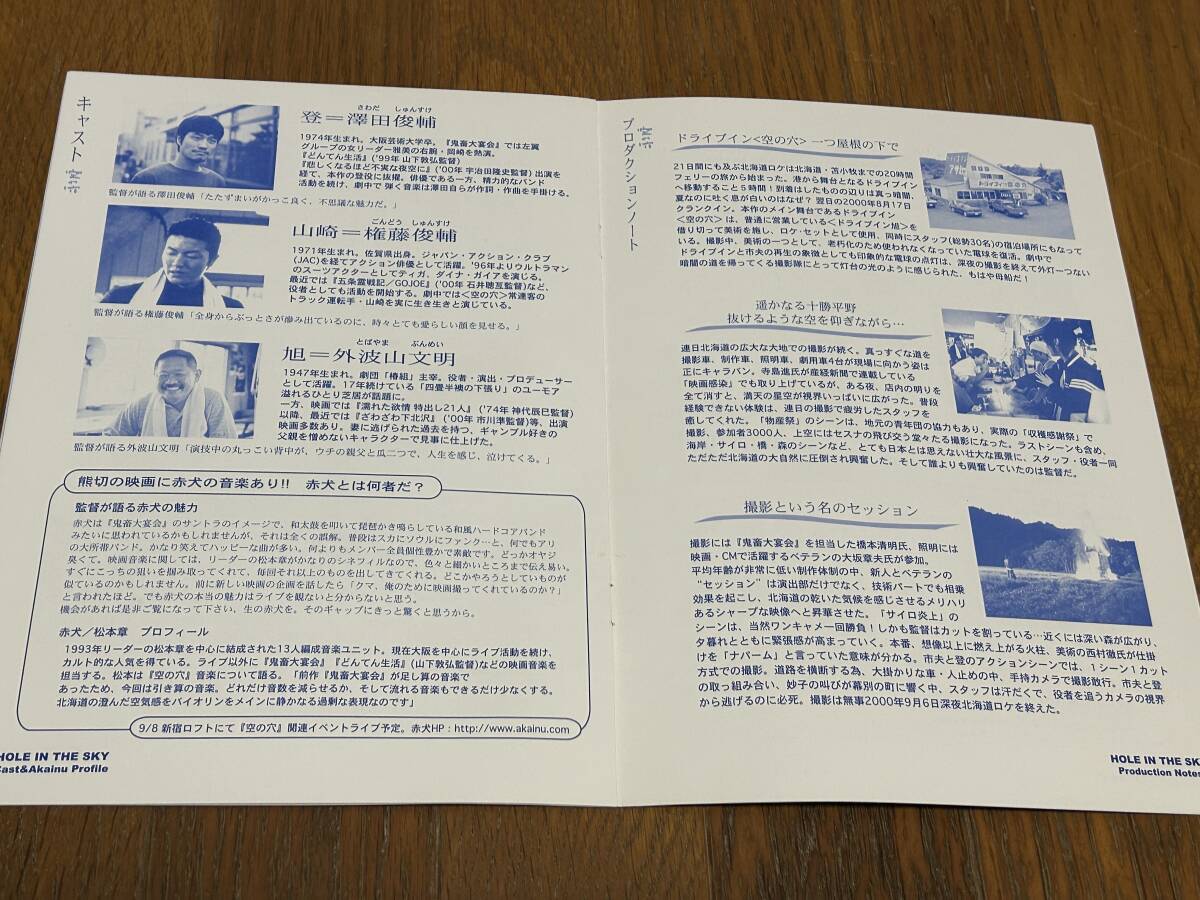 キャスト
さわだ しゅんすけ
登＝澤田俊輔
1974年生まれ。大阪芸術大学卒。『鬼畜大宴会』では左翼
グループの女リーダー雅美の右腕・岡崎を熱演。
『どんてん生活』('99年 山下敦弘監督)
『悲しくなるほど不実な夜空に』('00年 宇治田隆史監督) 出演を
経て、本作の登役に抜擢。俳優である一方、精力的なバンド
活動を続け、劇中で 弾く音楽は澤田自らが作詞・作曲を手掛ける。
監督が語る澤田俊輔「たたずまいがかっこ良く、不思議な魅力だ。」
ごんどう しゅんすけ
山崎＝権藤俊輔
1971年生まれ。佐賀県出身。ジャパン・アクション・クラブ
(JAC)を経てアクション俳優として活躍。'96年よりウルトラマン
のスーツアクターとしてティガ、ダイナ・ガイアを演じる。
最近では『五条霊戦記／GOJOE』('00年 石井聰亙監督)など、
役者としても活動を開始する。劇中では<空の穴>常連客の
トラック運転手・山崎を実に生き生きと演じている。
監督が語る権藤俊輔「全身からぶっとさが滲み出ているのに、時々とても愛らしい顔を見せる。」
とばやま ぶんめい
旭＝外波山文明
1947年生まれ。劇団「椿組」主宰。役者・演出・プロデューサー
として活躍。17年続けている「四畳半襖の下張り」のユーモア
溢れるひとり芝居が話題に。
一方、映画では『濡れた欲情 特出し21人』('74年 神代辰巳監督)
以降、最近では『ざわざわ下北沢』('00年 市川準監督)等、出演
映画多数あり。妻に逃げられた過去を持つ、ギャンブル好きの
父親を憎めないキャラクターで見事に仕上げた。
監督が語る外波山文明「演技中の丸っこい背中が、ウチの親父と瓜二つで、人生を感じ、泣けてくる。」
熊切の映画に赤犬の音楽あり!! 赤犬とは何者だ？
監督が語る赤犬の魅力
赤犬は『鬼畜大宴会』のサントラのイメージで、和太鼓を叩いて琵琶かき鳴らしている和風ハードコアバンド
みたいに思われているかもしれませんが、それは全くの誤解。普段はスカにソウルにファンク…と、何でもアリ
の大所帯バンド。かなり笑えてハッピーな曲が多い。何よりもメンバー全員個性豊かで素敵です。どっかオヤジ
臭くて。映画音楽に関しては、リーダーの松本章がかなりのシネフィルなので、色々と細かいところまで伝え易い。
すぐにこっちの狙いを掴み取ってくれて、毎回それ以上のものを出してきてくれる。どこかやろうとしているものが
似ているのかもしれません。前に新しい映画の企画を話したら「クマ、俺のために映画撮ってくれているのか？」
と言われたほど。でも赤犬の本当の魅力はライブを観ないと分からないと思う。
機会があれば是非ご覧になって下さい、生の赤犬を。そのギャップにきっと驚くと思うから。
赤犬／松本章 プロフィール
1993年リーダーの松本章を中心に結成された13人編成音楽ユニット。現在大阪を中心にライブ活動を続け、
カルト的な人気を得ている。ライブ以外に『鬼畜大宴会』『どんてん生活』(山下敦弘監督)などの映画音楽を
担当する。松本は『空の穴』音楽について語る。「前作『鬼畜大宴会』が足し算の音楽で
あったため、今回は引き算の音楽。どれだけ音数を減らせるか、そして流れる音楽もできるだけ少なくする。
北海道の澄んだ空気感をバイオリンをメインに静かなる過剰な表現なのです」
9/8 新宿ロフトにて『空の穴』関連イベントライブ予定。赤犬HP：http://www.akainu.com
HOLE IN THE SKY
Cast&Akainu Profile
プロダクションノート
ドライブイン<空の穴> 一つ屋根の下で
21日間にも及ぶ北海道ロケは北海道・苫小牧までの20時間
フェリーの旅から始まった。港から舞台となるドライブイン
へ移動すること５時間！到着はしたものの辺りは真っ暗闇、
夏なのに吐く息が白いのはなぜ？ 翌日の2000年8月17日
クランクイン。本作のメイン舞台であるドライブイン
<空の穴>は、普通に営業している<ドライブイン旭>を
借り切って美術を施し、ロケ・セットとして使用、同時にスタッフ(総勢30名)の宿泊場所にもなって
いる。撮影中、美術の一つとして、老朽化のため使われなくなっていた電球を復活。劇中で
ドライブインと市夫の再生の象徴としても印象的な電球の点灯は、深夜の撮影を終えて外灯一つない
暗闇の道を帰ってくる撮影隊にとって灯台の光のように感じられた、もはや母船だ！
遥かなる十勝平野
抜けるような空を仰ぎながら…
連日北海道の広大な大地での撮影が続く。真っすぐな道を
撮影車、制作車、照明車、劇用車4台が現場に向かう姿は
正にキャラバン。寺島進氏が産経新聞で連載している
「映画感染」でも取り上げているが、ある夜、店内の明りを
全て消すと、満天の星空が視界いっぱいに広がった。普段
経験できない体験は、連日の撮影で疲労したスタッフを
癒してくれた。「物産祭」のシーンは、地元の青年団の協力もあり、実際の「収穫感謝祭」で
撮影、参加者3000人、上空にはセスナの飛び交う堂々たる撮影になった。ラストシーンも含め、
海岸・サイロ・橋・森のシーンなど、とても日本とは思えない壮大な風景に、スタッフ・役者一同
ただただ北海道の大自然に圧倒され興奮した。そして誰よりも興奮していたのは監督だ。
撮影という名のセッション
撮影には『鬼畜大宴会』を担当した橋本清明氏、照明には
映画・CMで活躍するベテランの大坂章夫氏が参加。
平均年齢が非常に低い制作体制の中、新人とベテランの
“セッション”は演出部だけでなく、技術パートでも相乗
効果を起こし、北海道の乾いた気候を感じさせるメリハリ
あるシャープな映像へと昇華させた。「サイロ炎上」の
シーンは、当然ワンキャメ一回勝負！しかも監督はカットを割っている…近くには深い森が広がり、
夕暮れとともに緊張感が高まっていく。本番、想像以上に燃え上がる火柱、美術の西村徹氏が仕掛
けを「ナパーム」と言っていた意味が分かる。市夫と登のアクションシーンでは、１シーン１カット
方式での撮影。道路を横断する為、大掛かりな車・人止めの中、手持カメラで撮影敢行。市夫と登
の取っ組み合い、妙子の叫びが幕別の町に響く中、スタッフは汗だくで、役者を追うカメラの視界
から逃げるのに必死。撮影は無事2000年9月6日深夜北海道ロケを終えた。
HOLE IN THE SKY
Production Notes